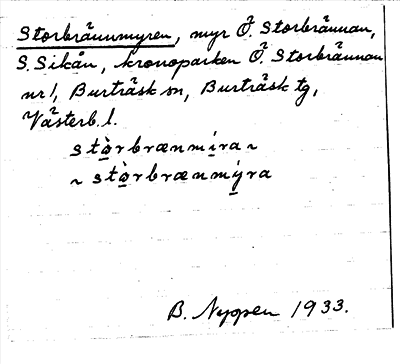 Storbrännmyren, myr Ö. Storbrännan,
S. Sikån, kronoparken Ö. Storbrännan
nr 1, Burträsk sn, Burträsk tg,
Västerb. l.
stòrbrænmíra ~
~ stòrbrænmýra
B. Nyppen 1933.